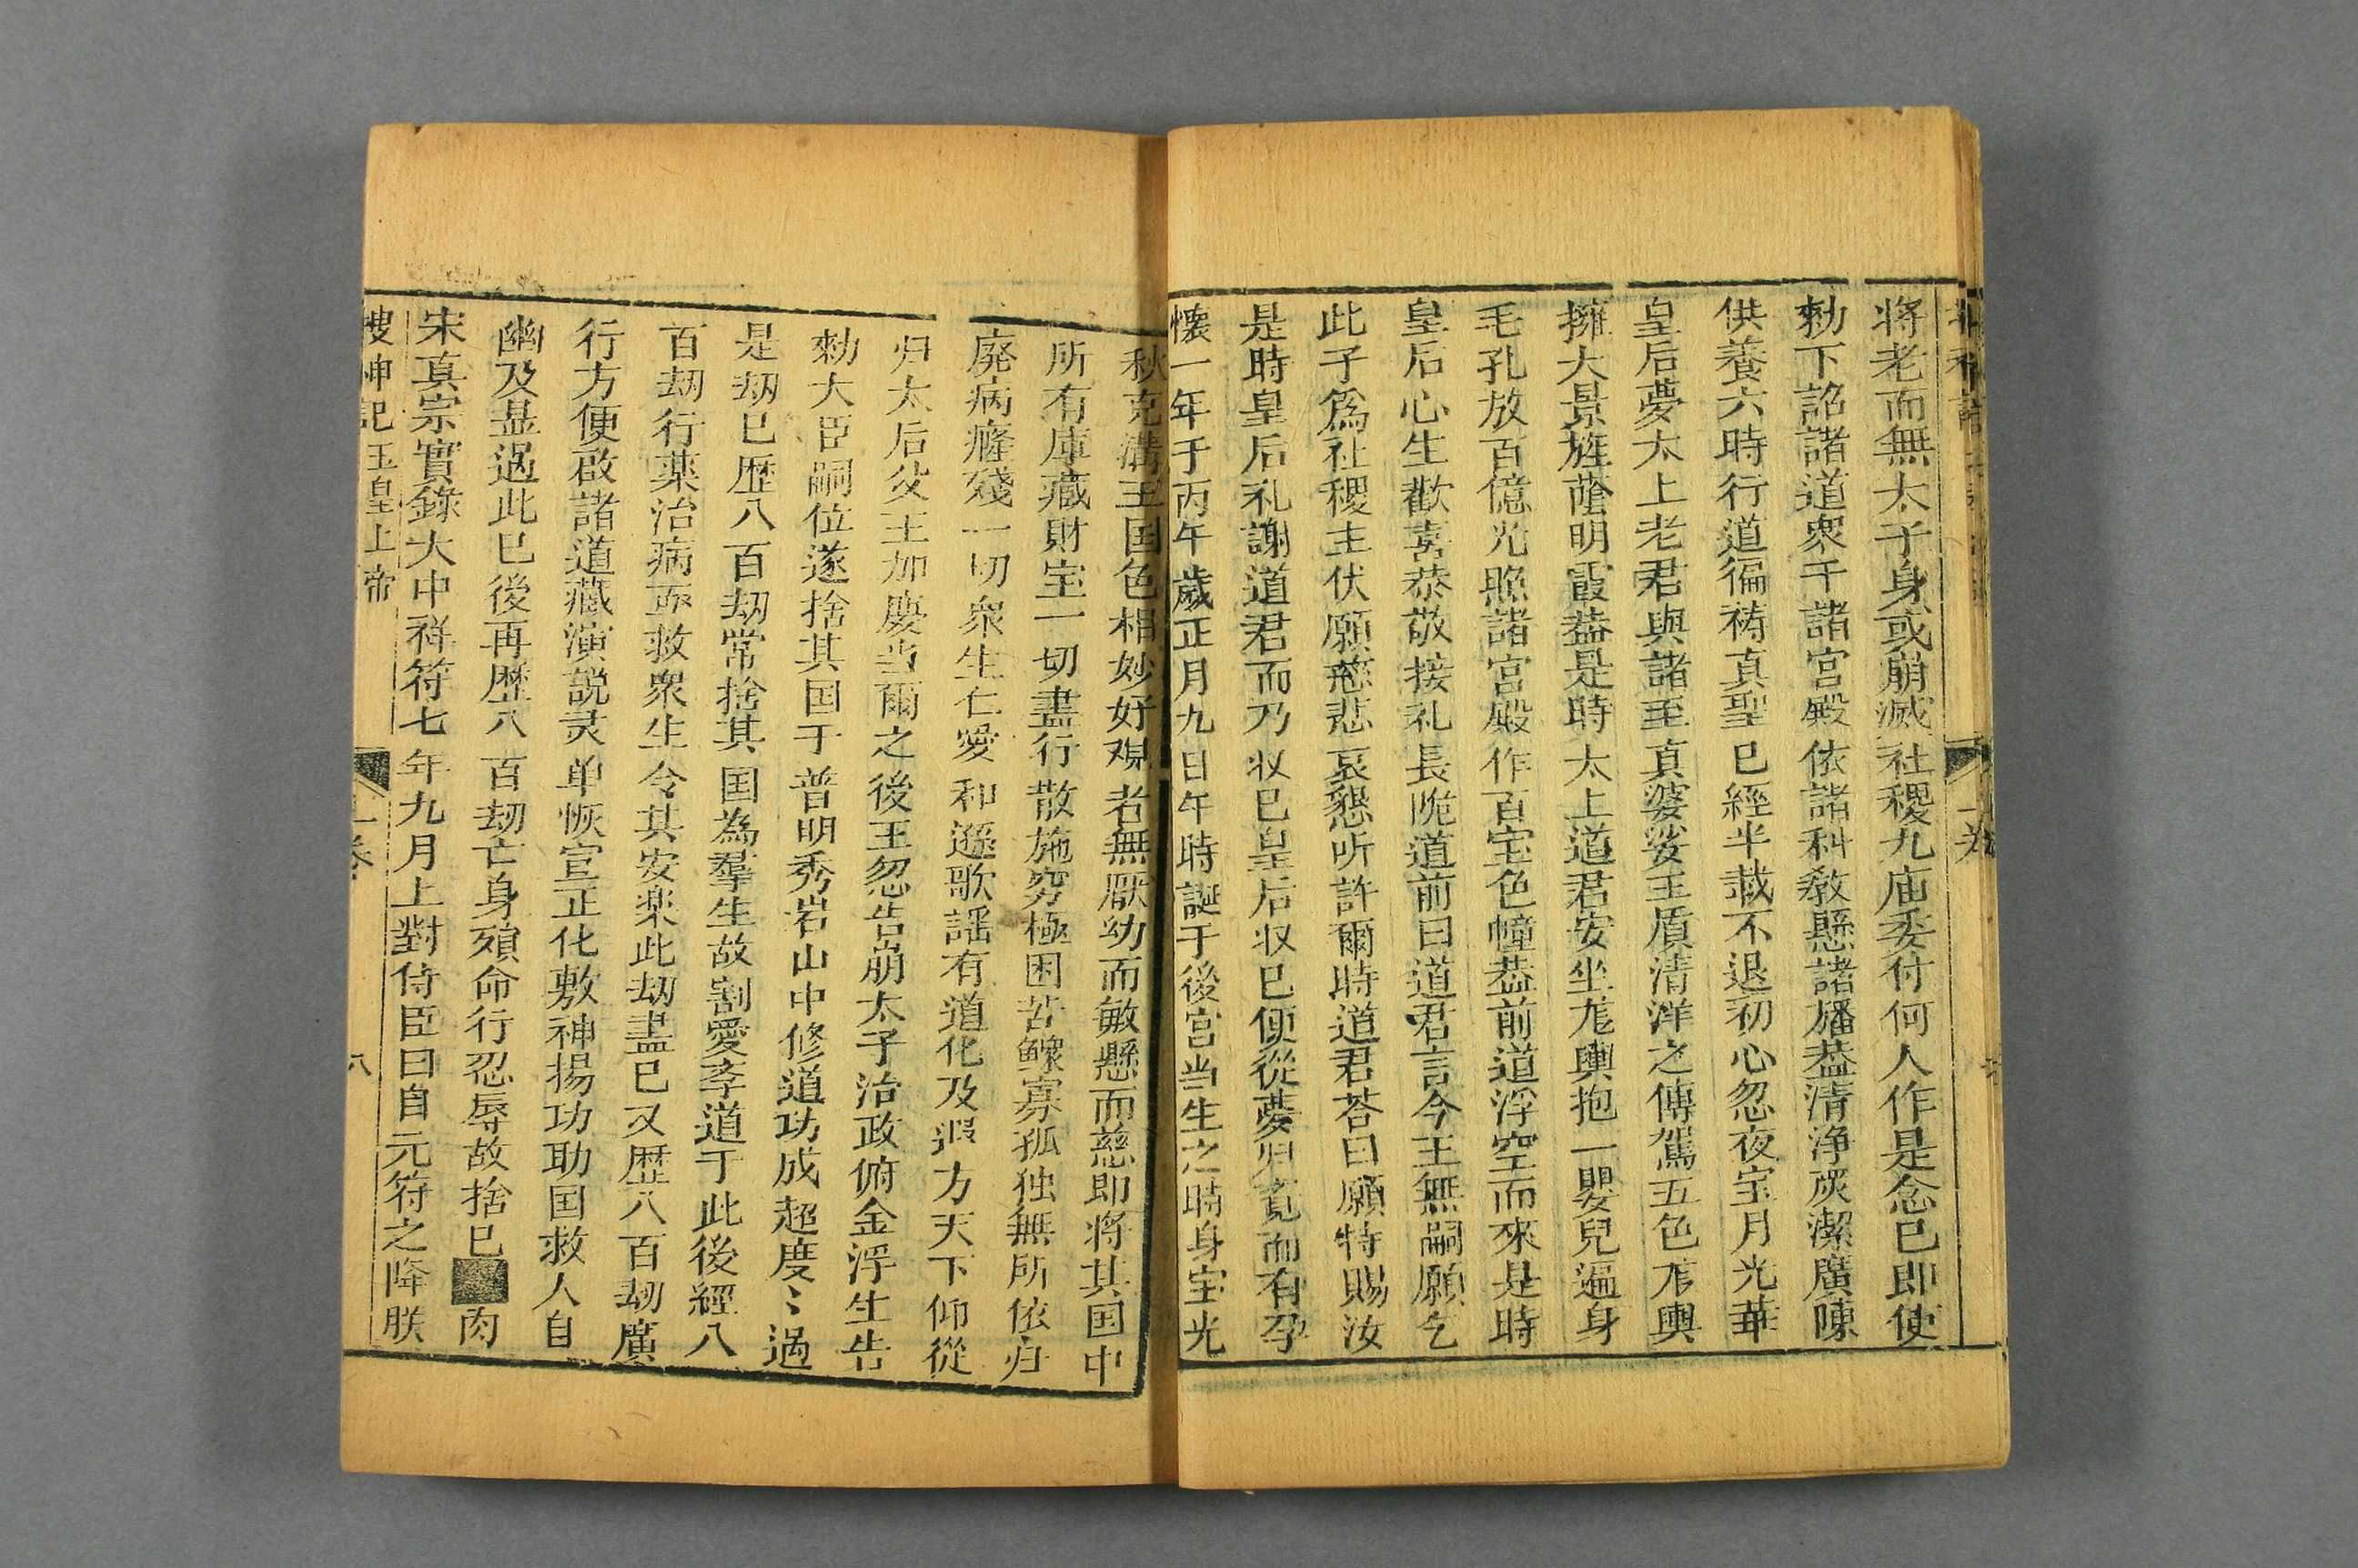 将老而無太子身或崩滅社稷九庙委付何人作是念已即使
勅下詔諸道衆于諸宮殿依諸科教懸諸旛葢清净嚴潔廣陳
供養六時行道徧祷真聖已經半載不退初心忽夜宝月光華
皇后夢太上老君與諸至真婆娑玉質清洋之儔駕五色龙輿
擁大景旌蔭明霞葢是時太上道君安坐龙輿抱一嬰兒遍身
毛孔放百億光照諸宮殿作百宝色幢葢前道浮空而來是時
皇后心生歡喜恭敬接礼長跪道前曰道君言今王無嗣願乞
此子爲社稷主伏願慈悲哀懇听許爾時道君荅曰願特賜汝
是時皇后礼謝道君而乃収已皇后収已便從夢归覔而有孕
懷一年于丙午歲正月九日午時誕于後宮当生之時身宝光
秋充満王国色相妙好观者無厭幼而敏懸而慈即将其国中
所有庫藏財宝一切盡行散施穷極困苦鰥寡孤独無所依归
廃病癃殘一切衆生仁愛和遜歌謡有道化及遐方天下仰從
归太后父王加慶当爾之後王忽告崩太子治政俯金浮生告
勅大臣嗣位遂捨其国于普明秀岩山中修道功成超度〻過
是刼已歴八百刼常捨其国為羣生故割愛李道于此後經八
百刼行薬治病亟救衆生令其安楽此刼盡已又歴八百刼廣
行方便啟諸道藏演説灵单恢宣正化敷神揚功助国救人自
幽及显過此已後再歴八百刼亡身殞命行忍辱故捨已肉
宋真宗實錄大中祥符七年九月上對侍臣曰自元符之降朕
搜神記 玉皇上帝 一卷 八